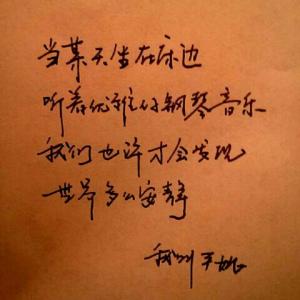 当某天坐在床边
听着优雅的钢琴音乐
我们也许才会发现
世界多么安静
我叫